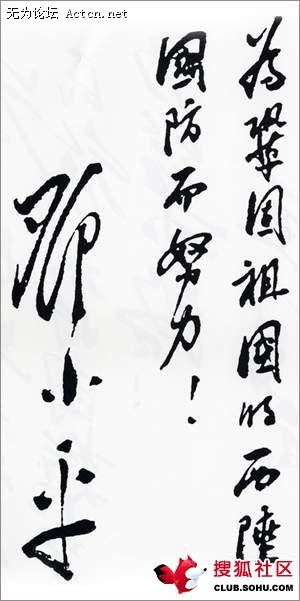 无为论坛 Actcn.net
为鞏固祖國的西陲
國防而努力！
邓小平
搜狐社区
CLUB.SOHU.COM